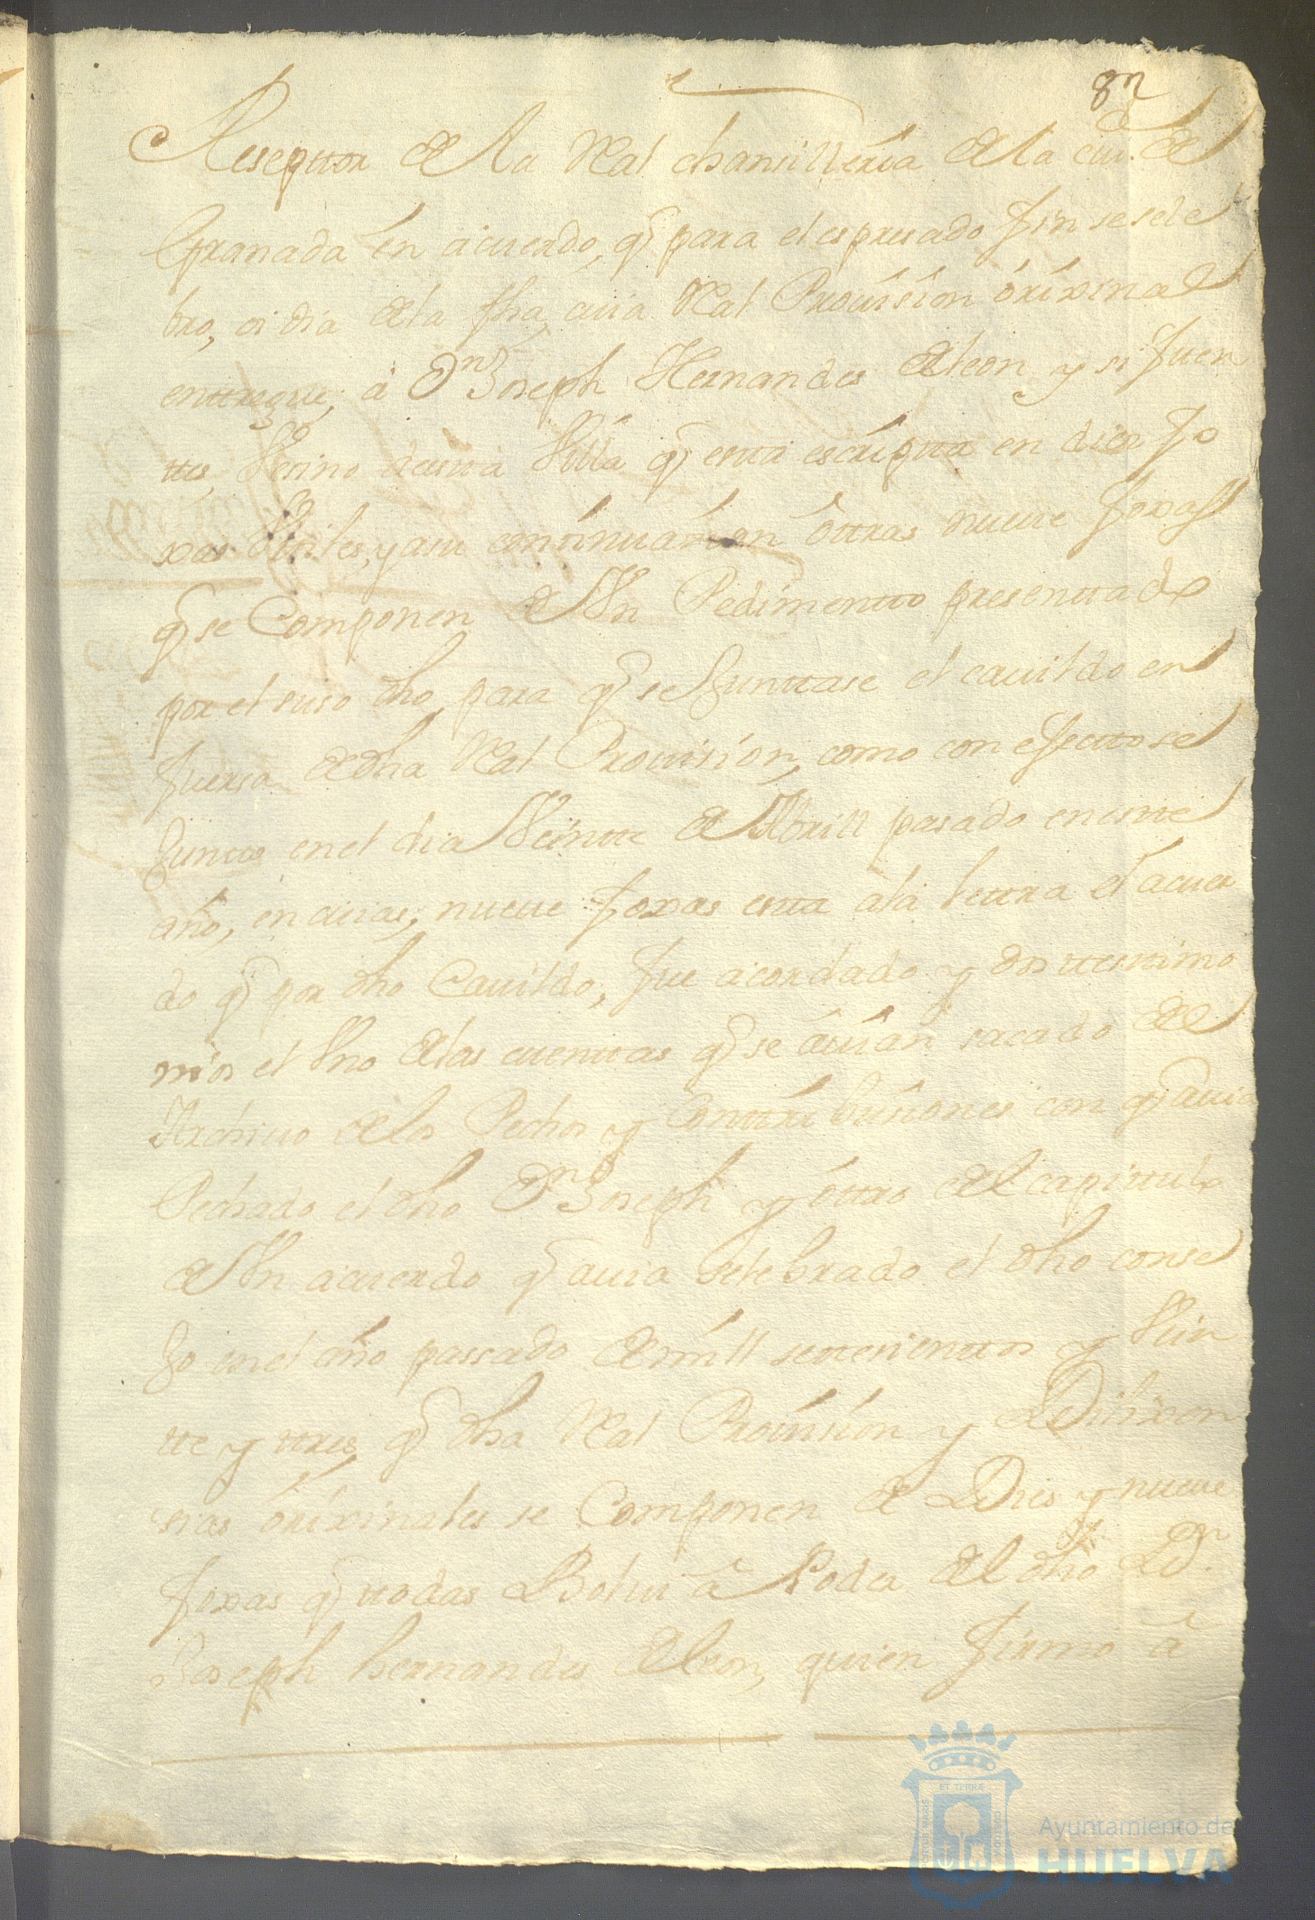 8n
Reseptor de la Real chansilleria de la ciud. de
Granada en acuerdo, q para el espresado fin se sele
bro, oi dia de la fha, cuia Real Provision orixinal
enttregue, à Dn Joseph Hernandes de leon y si fuen
tes, Vesino de esta Villa q esta escriptta en dies fo
xas Utiles, y a su continuasion ôttras nueve foxas
q se Componen de Un Pedimentto presenttado
por el suso dho para q se Junttase el cavildo en
fuersa de dha Real Provision, como con efectto se
Juntto en el dia Veintte de Abrill pasado en este
año, en cuias, nueve foxas esta a la lettra el acuer
do q por dho Cavildo, fue acordado y dos ttesttimo
nios el Uno de las cuenttas q se avian sacado del
Archivo de los Pechos y Conttribusiones con q avia
Pechado el dho Dn Joseph y ôttro del capittulo
de Un acuerdo q avia selebrado el dho conse
Jo en el año passado de mill settesienttos y Vein
tte y ttres, q dha Real Provision y Dilixen
sias orixinales se Componen de Dies y nueve
foxas q ttodas Bolvi â Poder del dho Dn.
Joseph hernandes de leon, quien firmo â
ET TERRAE
Ayuntamiento de
HUELVA